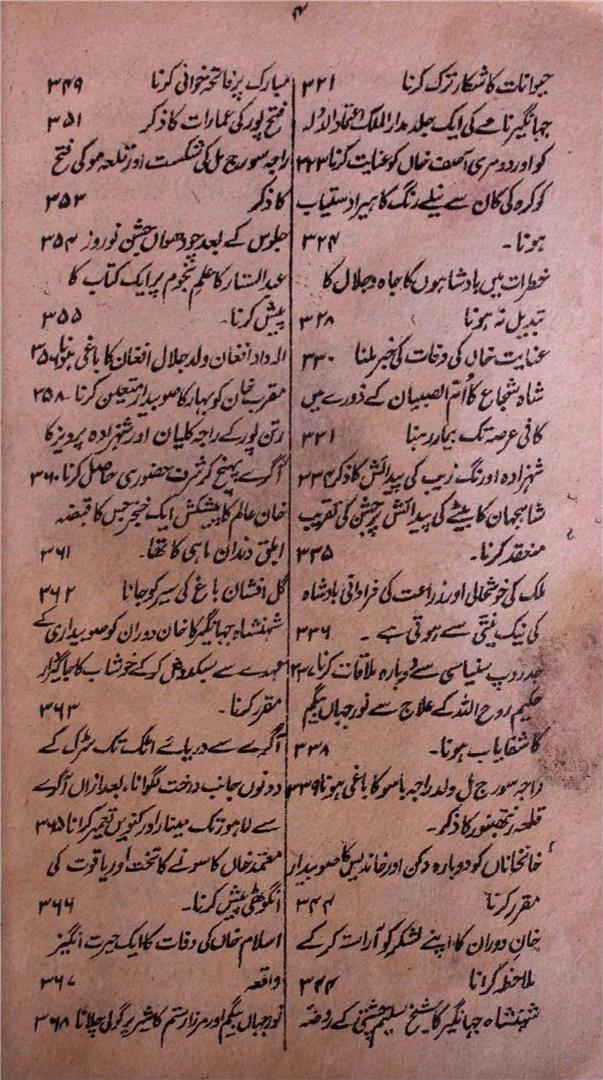 ۴
حیوانات کا شکار ترک کرنا ۳۲۱
جہانگیرنامے کی ایک جلد مدار الملک اعتماد الدولہ
کو اور دوسری آصف خاں کو عنایت کرنا ۳۲۳
کوکرہ کی کان سے نیلے رنگ کا ہیرا دستیاب
ہونا۔ ۳۲۴
خطرات میں بادشاہوں کا جاہ و جلال کا
تبدیل نہ ہونا ۳۲۸
عنایت خاں کی وفات کی خبر ملنا ۳۳۰
شاہ شجاع کا اُمّ الصبیان کے دورے میں
کافی عرصہ تک بیمار رہنا ۳۳۱
شہزادہ اورنگ زیب کی پیدائش کا ذکر ۳۳۴
شاہجہان کا بیٹے کی پیدائش پر جشن کی تقریب
منعقد کرنا۔ ۳۳۵
ملک کی خوشحالی اور زراعت کی فراوانی بادشاہ
کی نیک نیتی سے ہوتی ہے۔ ۳۳۶
جدروپ سنیاسی سے دوبارہ ملاقات کرنا
حکیم روح اللہ کے علاج سے نورجہاں بیگم
کا شفایاب ہونا۔ ۳۳۸
راجہ سورج مل ولد راجہ باسو کا باغی ہونا ۳۳۹
قلعہ رنتھنبور کا ذکر۔
خانخاناں کو دوبارہ دکن اور خاندیس کا صوبیدار
مقرر کرنا ۳۴۴
خان دوران کا اپنے لشکر کو آراستہ کر کے
ملاحظہ کرانا ۳۴۴
شہنشاہ جہانگیر کا شیخ سلیم چشتی کے روضہ
مبارک پر فاتحہ خوانی کرنا ۳۴۹
فتح پور کی عمارات کا ذکر ۳۵۱
راجہ سورج مل کی شکست اور قلعہ مو کی فتح
کا ذکر ۳۵۳
جلوس کے بعد چودھواں جشن نوروز ۳۵۴
عبدالستار کا علم نجوم پر ایک کتاب کا
پیش کرنا۔ ۳۵۵
الہ داد افغان ولد جلال افغان کا باغی ہونا ۳۵۶
مقرب خان کو بہار کا صوبیدار متعین کرنا۔ ۳۵۸
رتن پور کے راجہ کلیان اور شہزادہ پرویز کا
آگرے پہنچ کر شرف حضوری حاصل کرنا ۳۶۰
خان عالم کا پیشکش ایک خنجر جس کا قبضہ
ابلق دندان ماہی کا تھا۔ ۳۶۱
گل افشان باغ کی سیر کو جانا ۳۶۲
شہنشاہ جہانگیر کا خان دوران کو صوبیداری کے
عہدے سے سبکدوش کر کے خوشاب کا جاگیردار
مقرر کرنا۔ ۳۶۳
آگرے سے دریائے اٹک تک سڑک کے
دونوں جانب درخت لگوانا، بعد ازاں آگرے
سے لاہور تک مینار اور کنویں تعمیر کرانا ۳۶۵
معتمد خاں کا سونے کا تخت اور یاقوت کی
انگوٹھی پیش کرنا۔ ۳۶۶
اسلام خاں کی وفات کا ایک حیرت انگیز
واقعہ ۳۶۷
نورجہاں بیگم اور مرزا رستم کا شیر پر گولی چلانا ۳۶۸